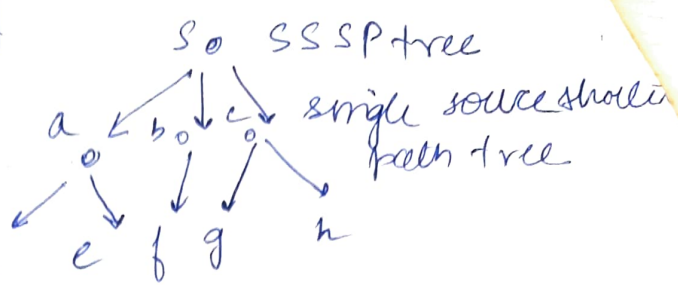 S SSSP tree
a b c single source shortes
path tree
e f g h